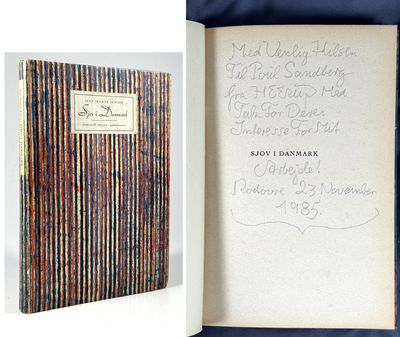 Sjov i Danmark
Med Venlig Hilsen
Til Poul Sandberg
fra HEERUP Med
Tak For Deres
Interesse For Mit
SJOV I DANMARK
Arbejde!
Rødovre 23 November
1985.